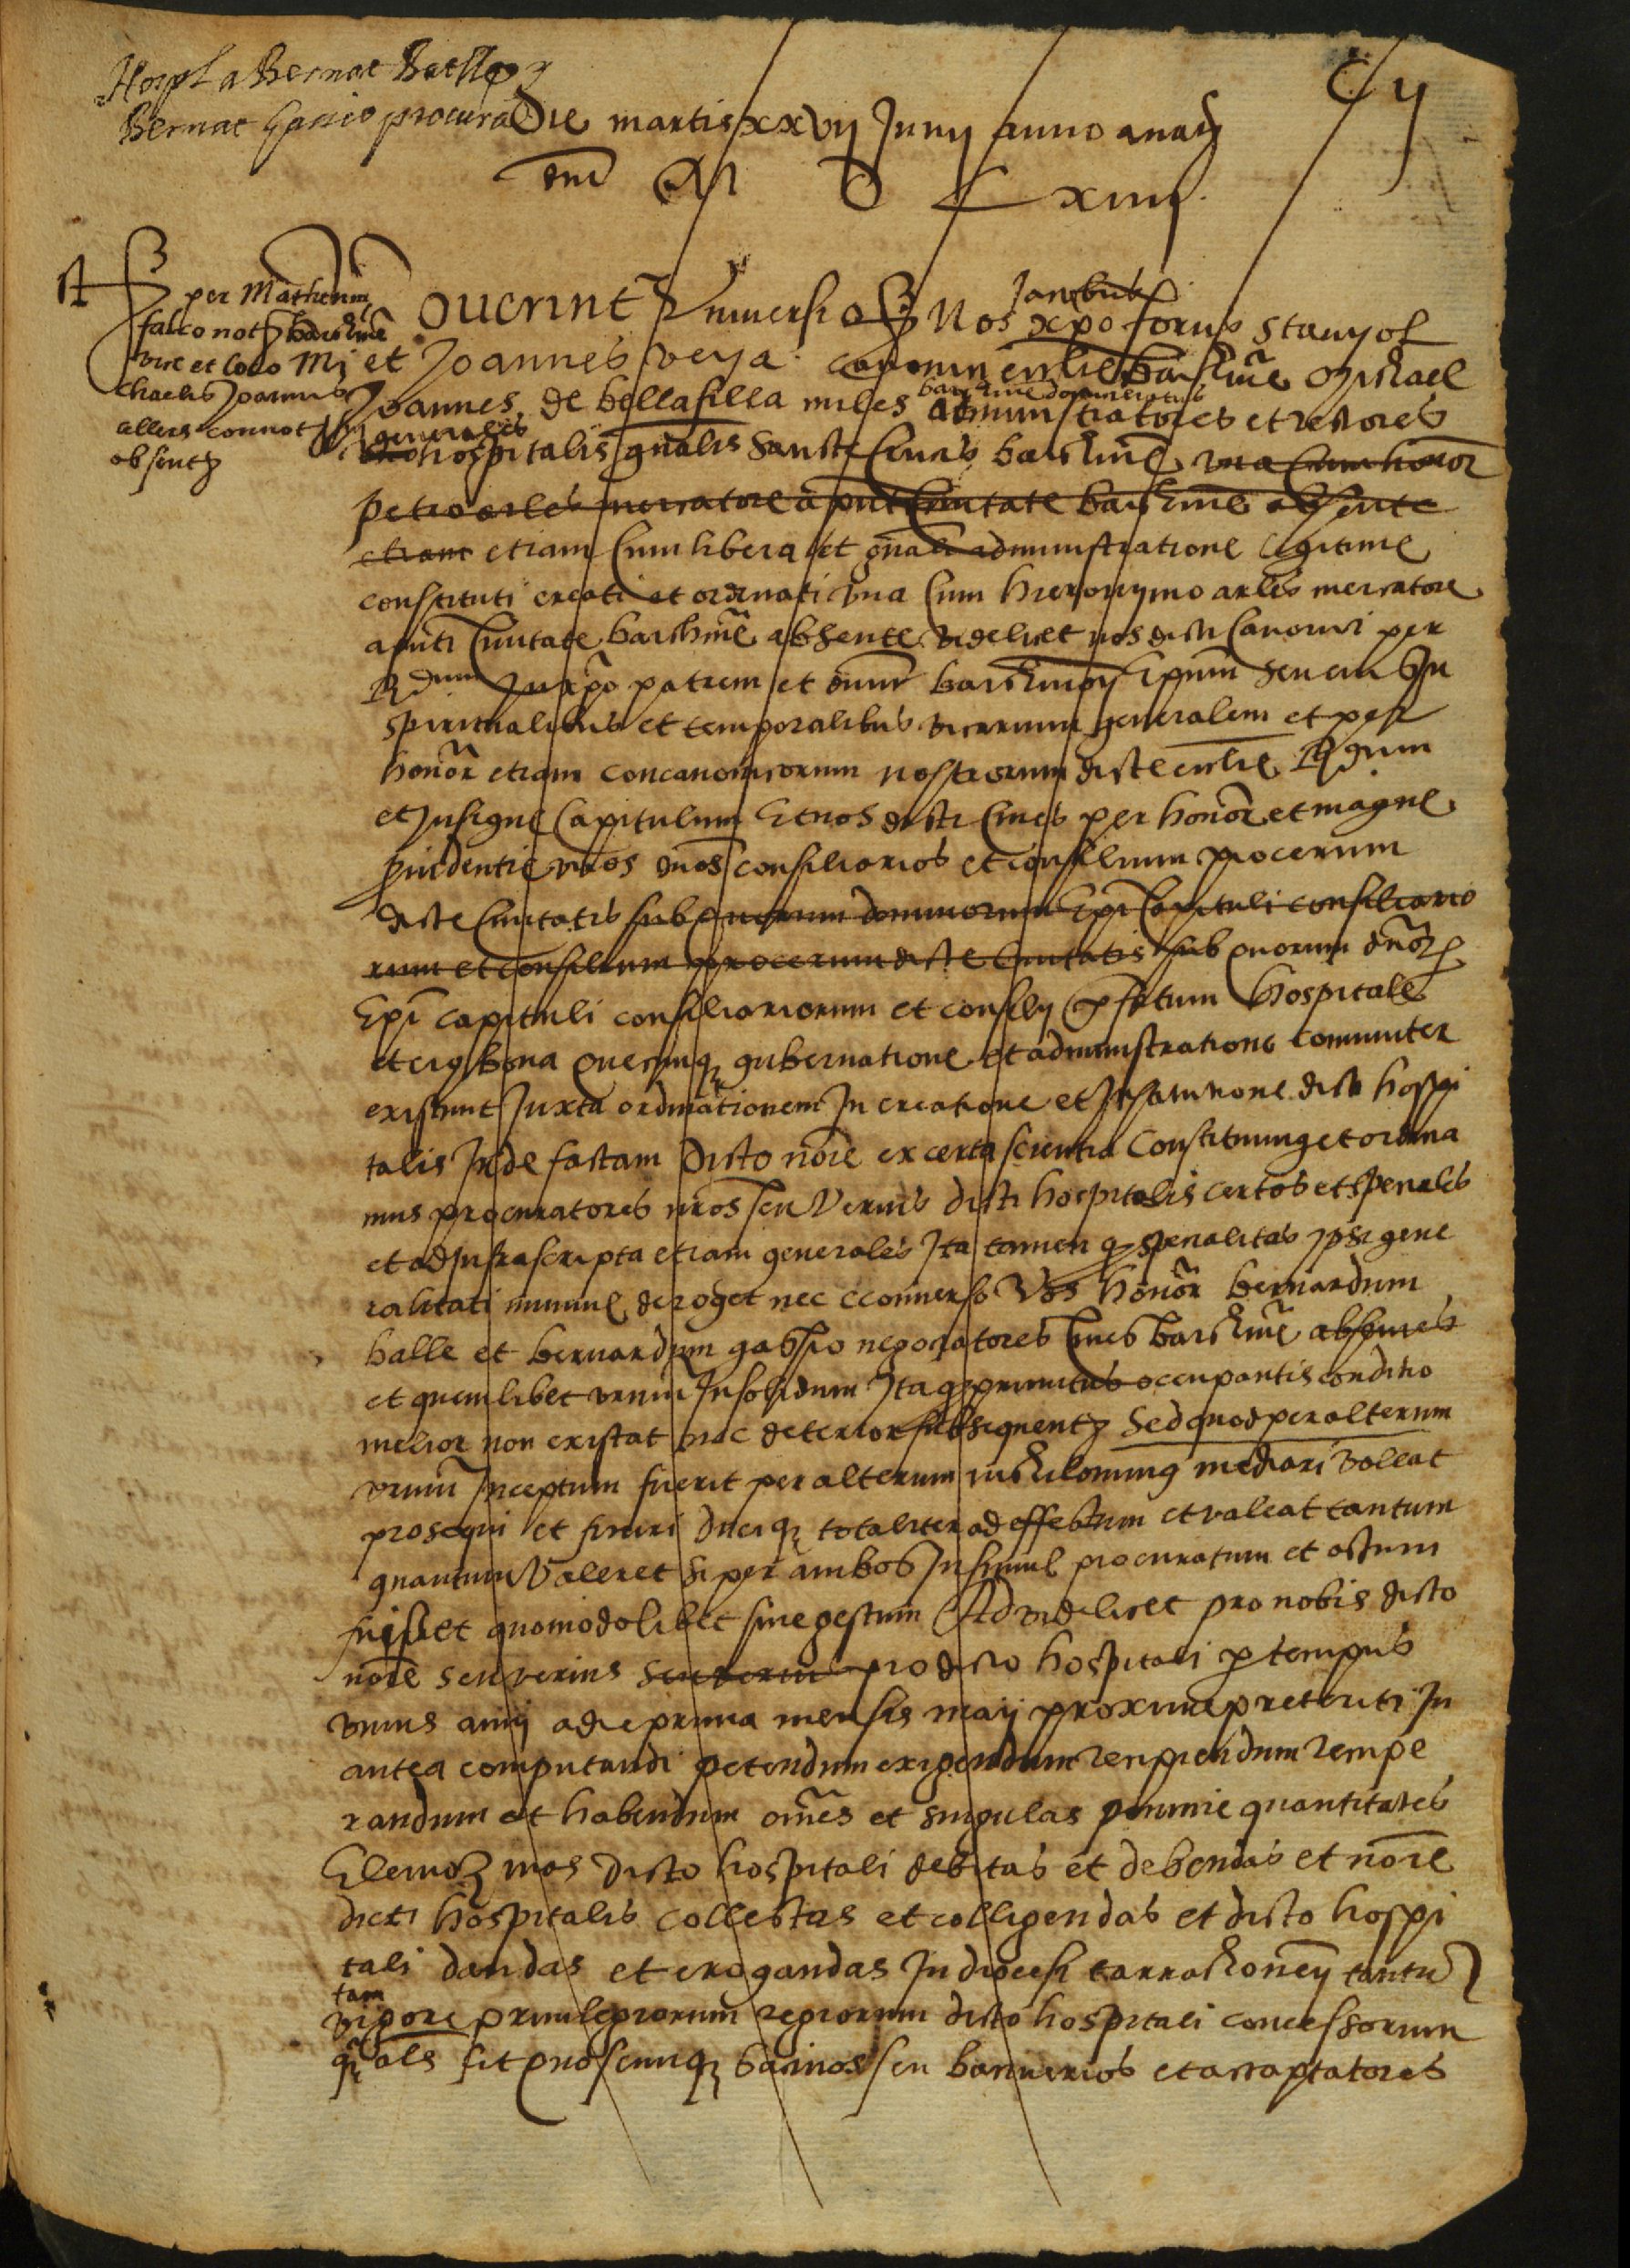 Hospl a Bernat Batlle y
Bernat procura
C ij
Die martis xxvij Junij anno a natte
dni M D L xiiij.
per Matheum
falco nott barchine
vice et loco Mi
chaelis Joannis
allers connott
absentis
Noverint Universi Nos Jacobus xpoforus stanyol
et Joannes veya canonici ecclie barchine Michael
Joannes de bellafilla miles barchine domiciliatus administratores et rectores
generales hospitalis gnalis Sancte Crucis barchine una cum honor
petro arles mercatore a pnti Civitate barchine absente
etiam etiam cum libera et gnali administratione legitime
constituti creati et ordinati una cum hieronymo arles mercatore
a pnti Civitate barchine absente videlicet nos dicti Canonici per
Rdum In xpo patrem et dnum barchinon Epum seu eius In
spiritualibus et temporalibus vicarium generalem et per
honor etiam concanonicorum nostrorum dicte ecclie Rdum
et Insigne Capitulum Et nos dicti Cives per honor et magne
prudentie viros dnos consiliarios et consilium procerum
dicte Civitatis sub quorum dominorum Epi Capituli consiliario
rum et consilium procerum dicte Civitatis sub quorum dnor
Epi capituli consiliariorum et consilij pfatum hospitale
et eius bona quecunq gubernatione et administratione comuniter
existunt Juxta ordinationem In creatione et Institutione dicti hospi
talis Inde factam Dicto noie ex certa scientia Constituimus et ordina
mus procuratores nros seu Verius dicti hospitalis certos et speciales
et ad Infrascripta etiam generales Ita tamen q specialitas ipsi gene
ralitati minime deroget nec econverso Vos honor bernardum
balle et bernardum negociatores Cives barchine absentes
et quemlibet vrum Insolidum Ita q primitus occupantis conditio
melior non existat nec deterior subsequentis Sed quod per alterum
vrum Inceptum fuerit per alterum nichilominus mediari valeat
prosequi et finiri duciq totaliter ad effectum et valeat tantum
quantum Valeret si per ambos Insimul procuratum et actum
fuisset quomodolibet sive gestum Ad videlicet pro nobis dicto
noie seu verius seu verius pro dicto hospitali p tempus
unius anni a die prima mensis maij proxime preteriti In
antea computandi petendum exigendum recipiendum recupe
randum et habendum omes et singulas peccunie quantitates
Elemosinas dicto hospitali debitas et debendas et noie
dicti hospitalis collectas et colligendas et dicto hospi
tali dandas et erogandas In diocesi tarrachonen tantu
tam vigore privilegiorum regiorum dicto hospitali concessorum
q als sit quoscunq bacinos seu bacinerios et accaptatores